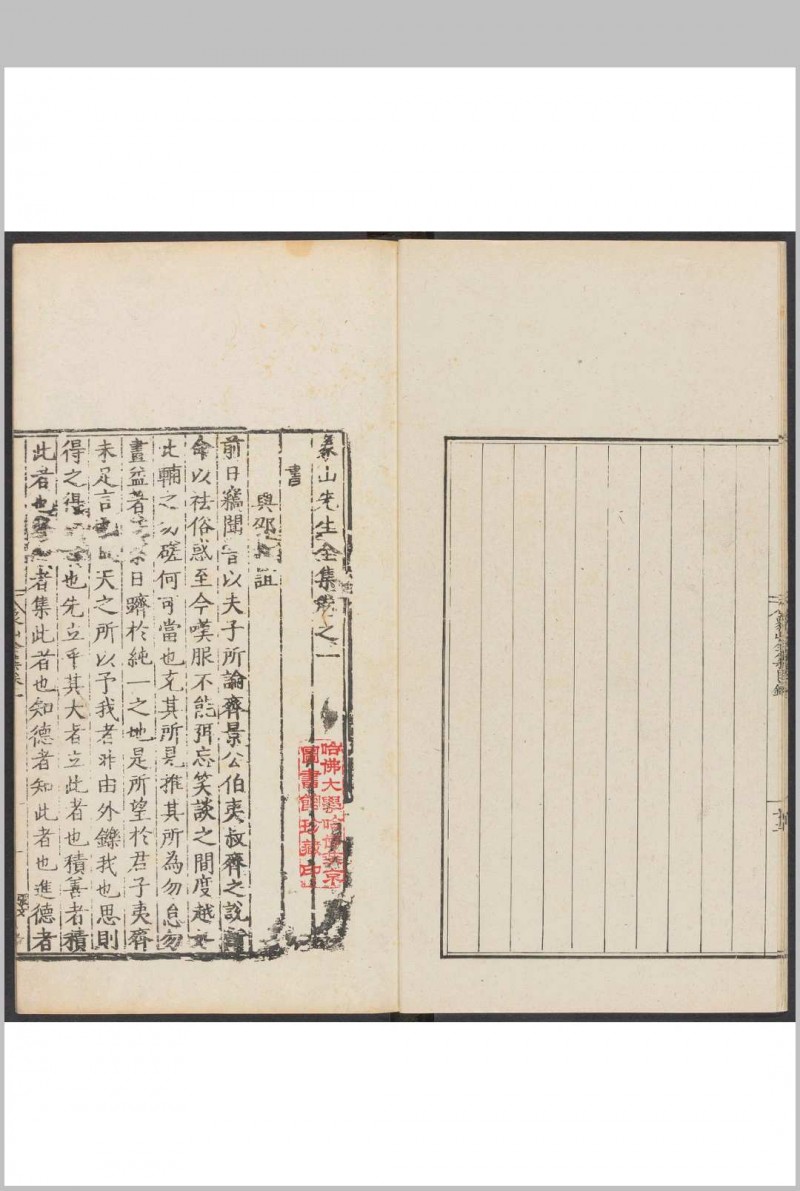 象山先生全集卷之一
書
與邵 誼
前日竊聞嘗以夫子所論齊景公伯夷叔齊之說
命以祛俗惑至今嘆服不能弭忘笑談之間度越如
此輔之 磋何可當也充其所見推其所為勿怠勿
畫益著 日躋於純一之地是所望於君子夷齊
未足言 天之所以予我者非由外鑠我也思則
得之得 也先立乎其大者立此者也積善者積
此者也 者集此者也知德者知此者也進德者
哈佛大學哈佛燕京
圖書館珍藏印